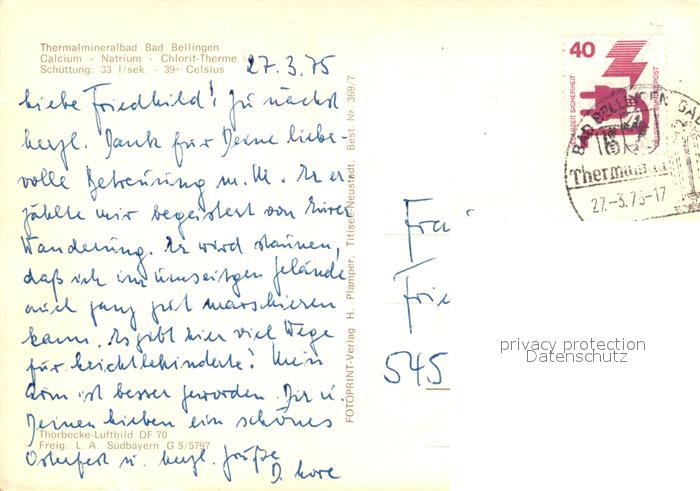 Thermalmineralbad Bad Bellingen
Calcium - Natrium - Chlorit-Therme
Schüttung: 33 l/sek. - 39° Celsius
27.3.75
Liebe Friedhild! Zunächst
herzl. Dank für Deine liebe-
volle Betreuung m. M. Er er
zählte mir begeistert von Eurer
Wanderung. Er wird staunen,
daß ich im umseitgen Gelände
auch ganz gut marschieren
kann. Es gibt hier viel Wege
für Leichtbehinderte! Mein
Arm ist besser geworden. Dir u.
Deinen Lieben ein schönes
Thorbecke-Luftbild DF 70
Freig. L. A. Südbayern G 5/5797
Osterfest u. herzl. Grüße
D. Lore
FOTOPRINT-Verlag H. Plamper, Titisee-Neustadt, Best. Nr. 369/7
40
JEDERZEIT SICHERHEIT
DEUTSCHE BUNDESPOST
BAD BELLINGEN
Thermal
27.-3.75-17
Frau
Frie
545
privacy protection
Datenschutz